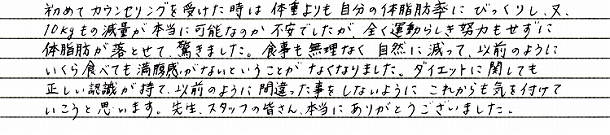 初めてカウンセリングを受けた時は体重よりも自分の体脂肪率にびっくりし、又、
10kgもの減量が本当に可能なのか不安でしたが、全く運動らしき努力もせずに
体脂肪が落とせて、驚きました。食事も無理なく自然に減って、以前のように
いくら食べても満腹感がないということがなくなりました。ダイエットに関しても
正しい認識が持て、以前のように間違った事をしないようにこれからも気を付けて
いこうと思います。先生、スタッフの皆さん、本当にありがとうございました。